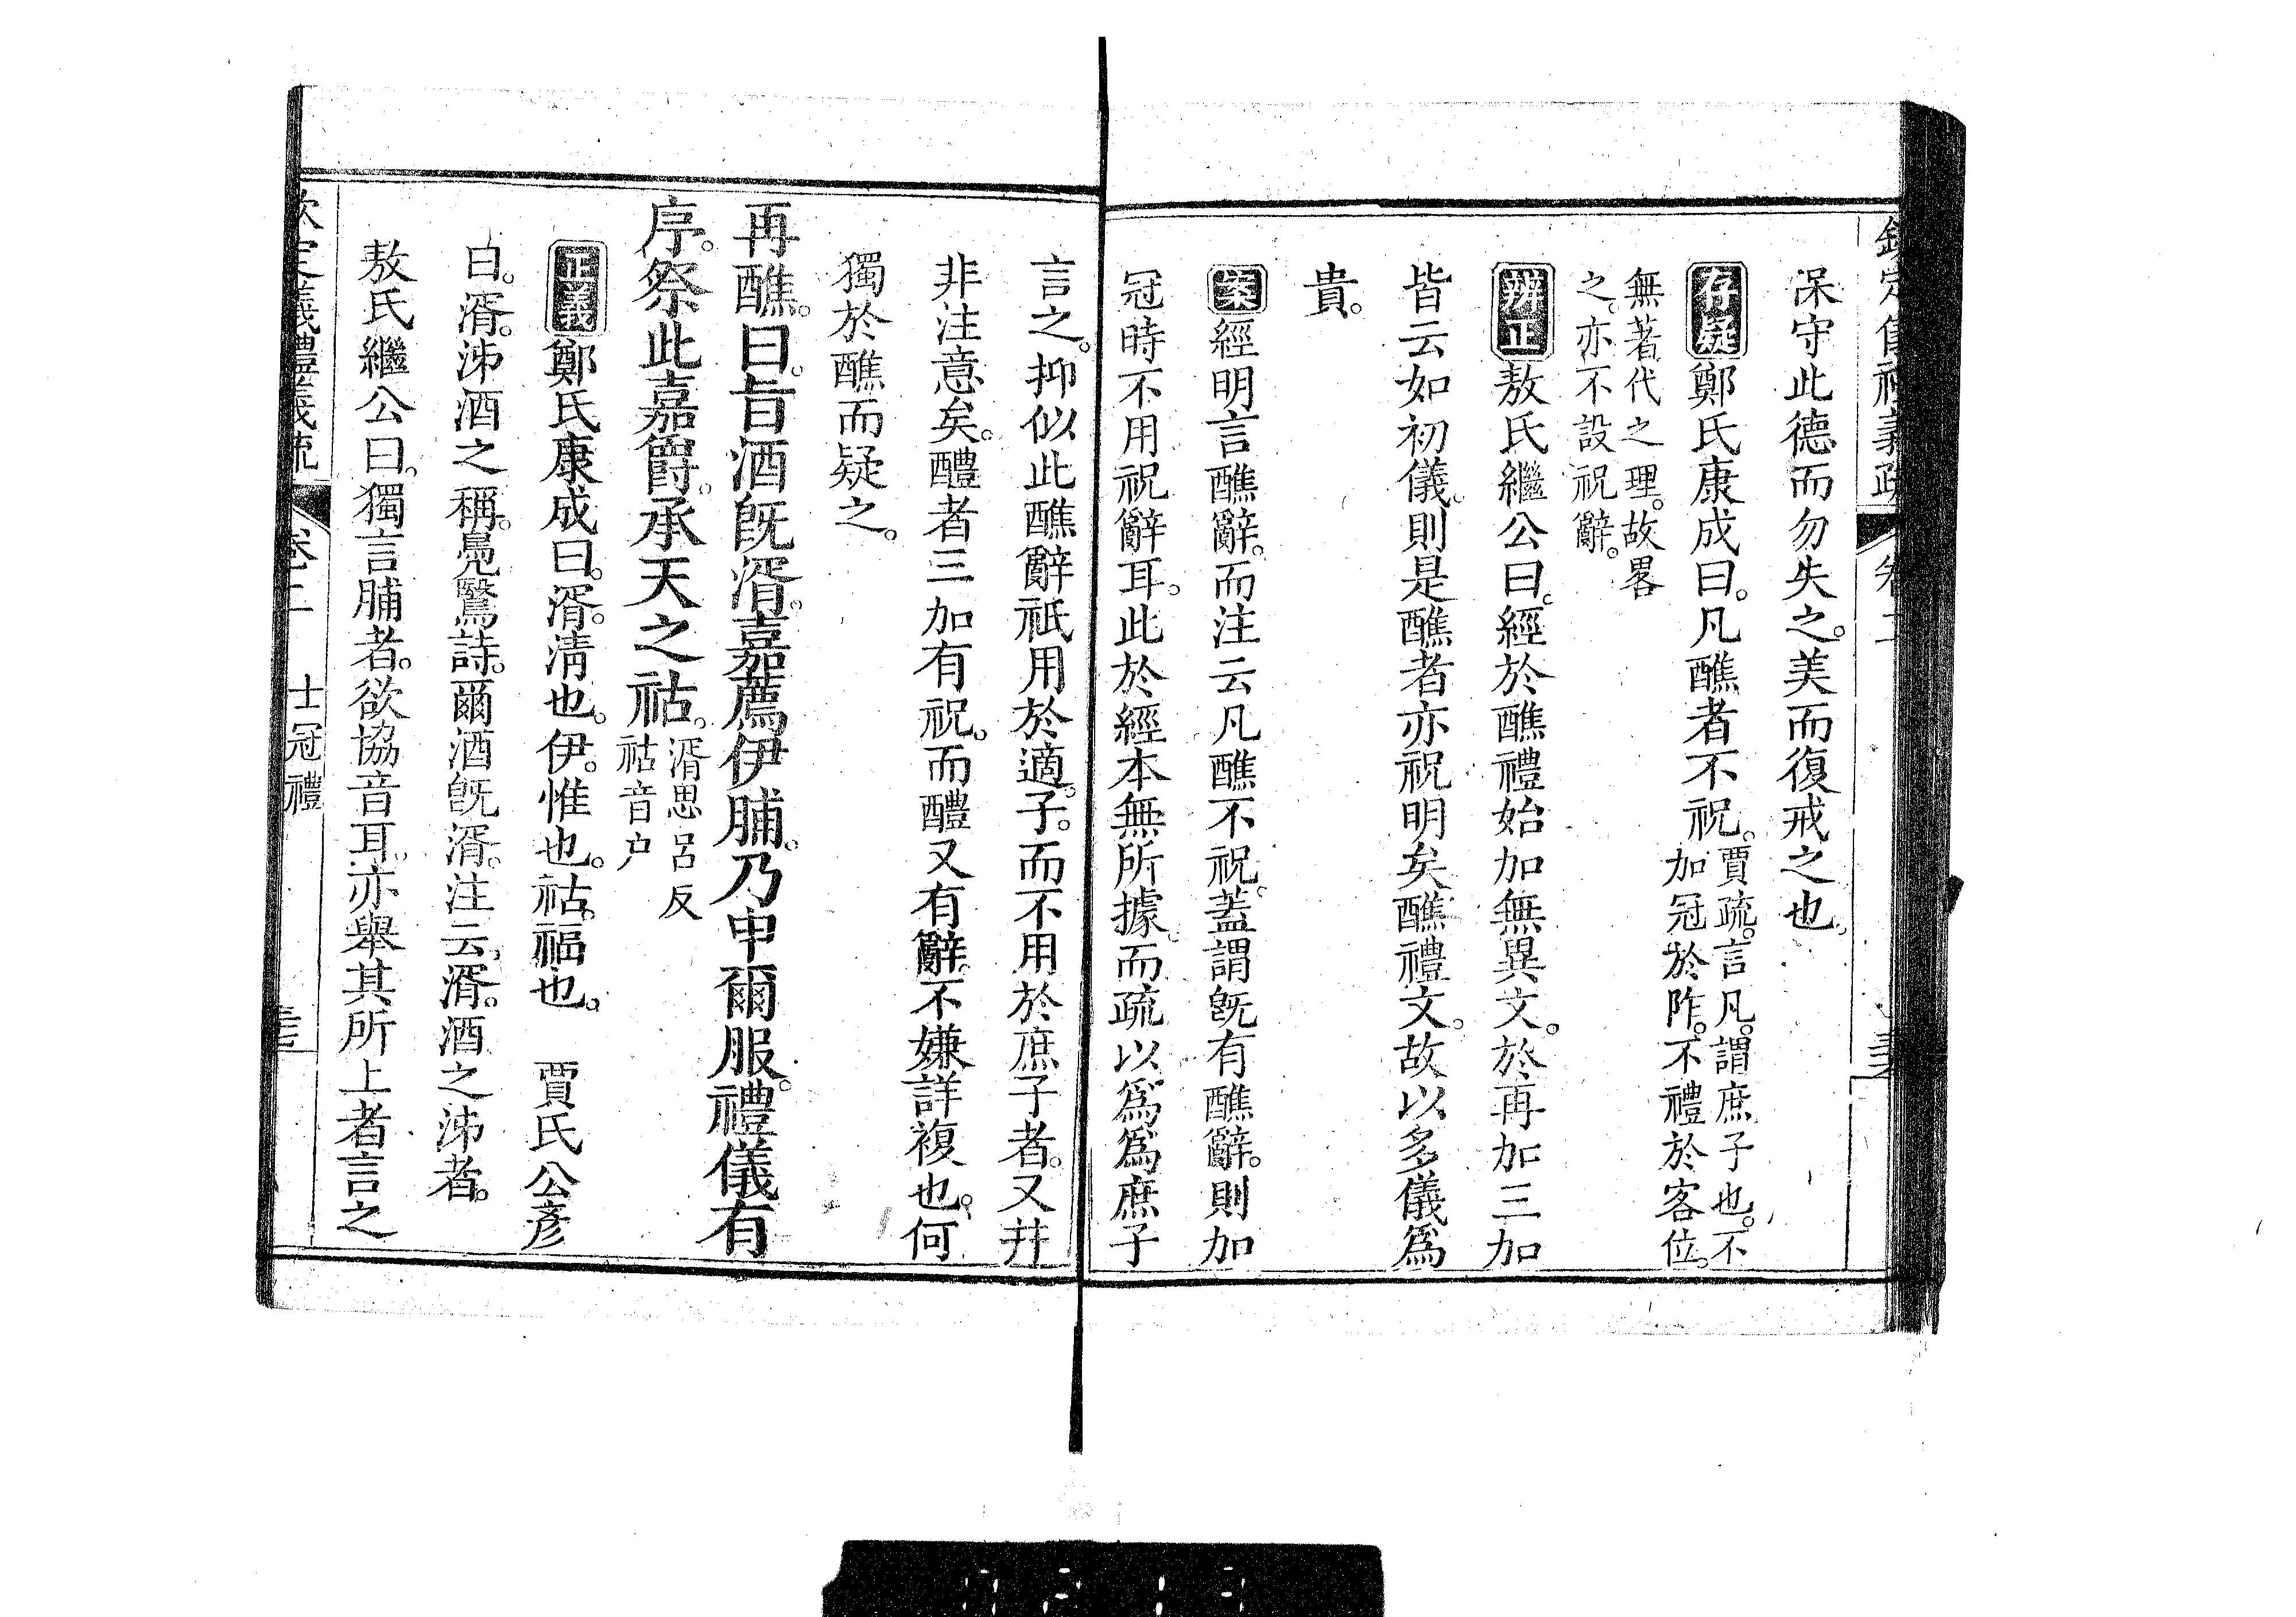 保守此德而勿失之。美而復戒之也。
存疑鄭氏康成曰。凡醮者不祝。賈疏。言凡。謂庶子也。不
加冠於阼。不禮於客位。
無著代之理。故畧
之。亦不設祝辭。
辨正敖氏繼公曰。經於醮禮始加無異文。於再加三加
皆云如初儀。則是醮者亦祝明矣醮禮文。故以多儀爲
貴。
案經明言醮辭。而注云凡醮不祝。蓋謂旣有醮辭。則加
冠時不用祝辭耳。此於經本無所據。而疏以爲爲庶子
言之。抑似此醮辭祇用於適子。而不用於庶子者。又幷
非注意矣。醴者三加有祝。而醴又有辭。不嫌詳複也。何
獨於醮而疑之。
再醮。曰。旨酒旣湑。嘉薦伊脯。乃申爾服。禮儀有
序。祭此嘉爵。承天之祜。湑思呂反
祜音户
正義鄭氏康成曰。湑。淸也。伊。惟也。祜。福也。 賈氏公彥
曰。湑。泲酒之稱。鳧鷖詩。爾酒旣湑。注云。湑。酒之泲者。
敖氏繼公曰。獨言脯者。欲協音耳。亦舉其所上者言之
欽定儀禮義疏 卷二 士冠禮